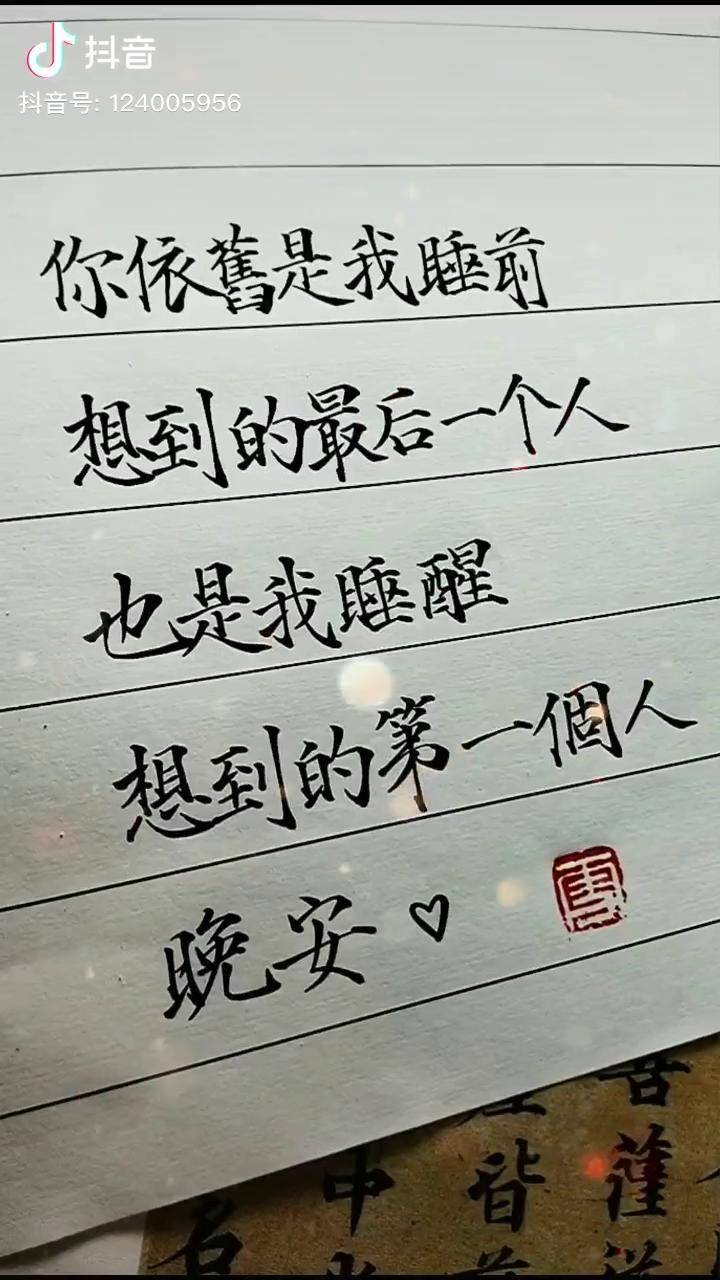 抖音
抖音号: 124005956
你依舊是我睡前
想到的最后一个人
也是我睡醒
想到的第一個人
晚安♡
雪
中
皆
名